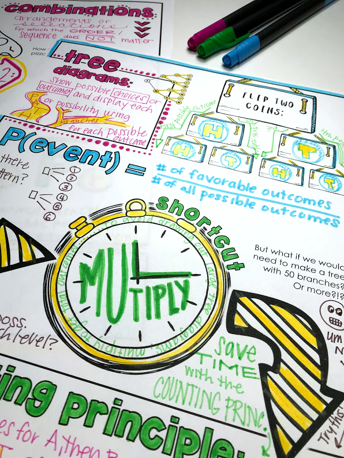 combinations:
arrangements or
selections
for which the ORDER/
sequence does NOT matter
tree
diagrams:
Show possible choices or
outcomes and display each
or possibility using
branches
for each possible
outcome
FLIP TWO
COINS:
H T
H T H T
P(event) = # of favorable outcomes
# of all possible outcomes
there
tern?
shortcut
MULTIPLY
But what if we would
need to make a tree
with 50 branches?
Or more?!?
um
N
poss.
ch level?
save
TIME
with the
COUNTING PRINC.
Try this!
ing principle:
es for A, then B